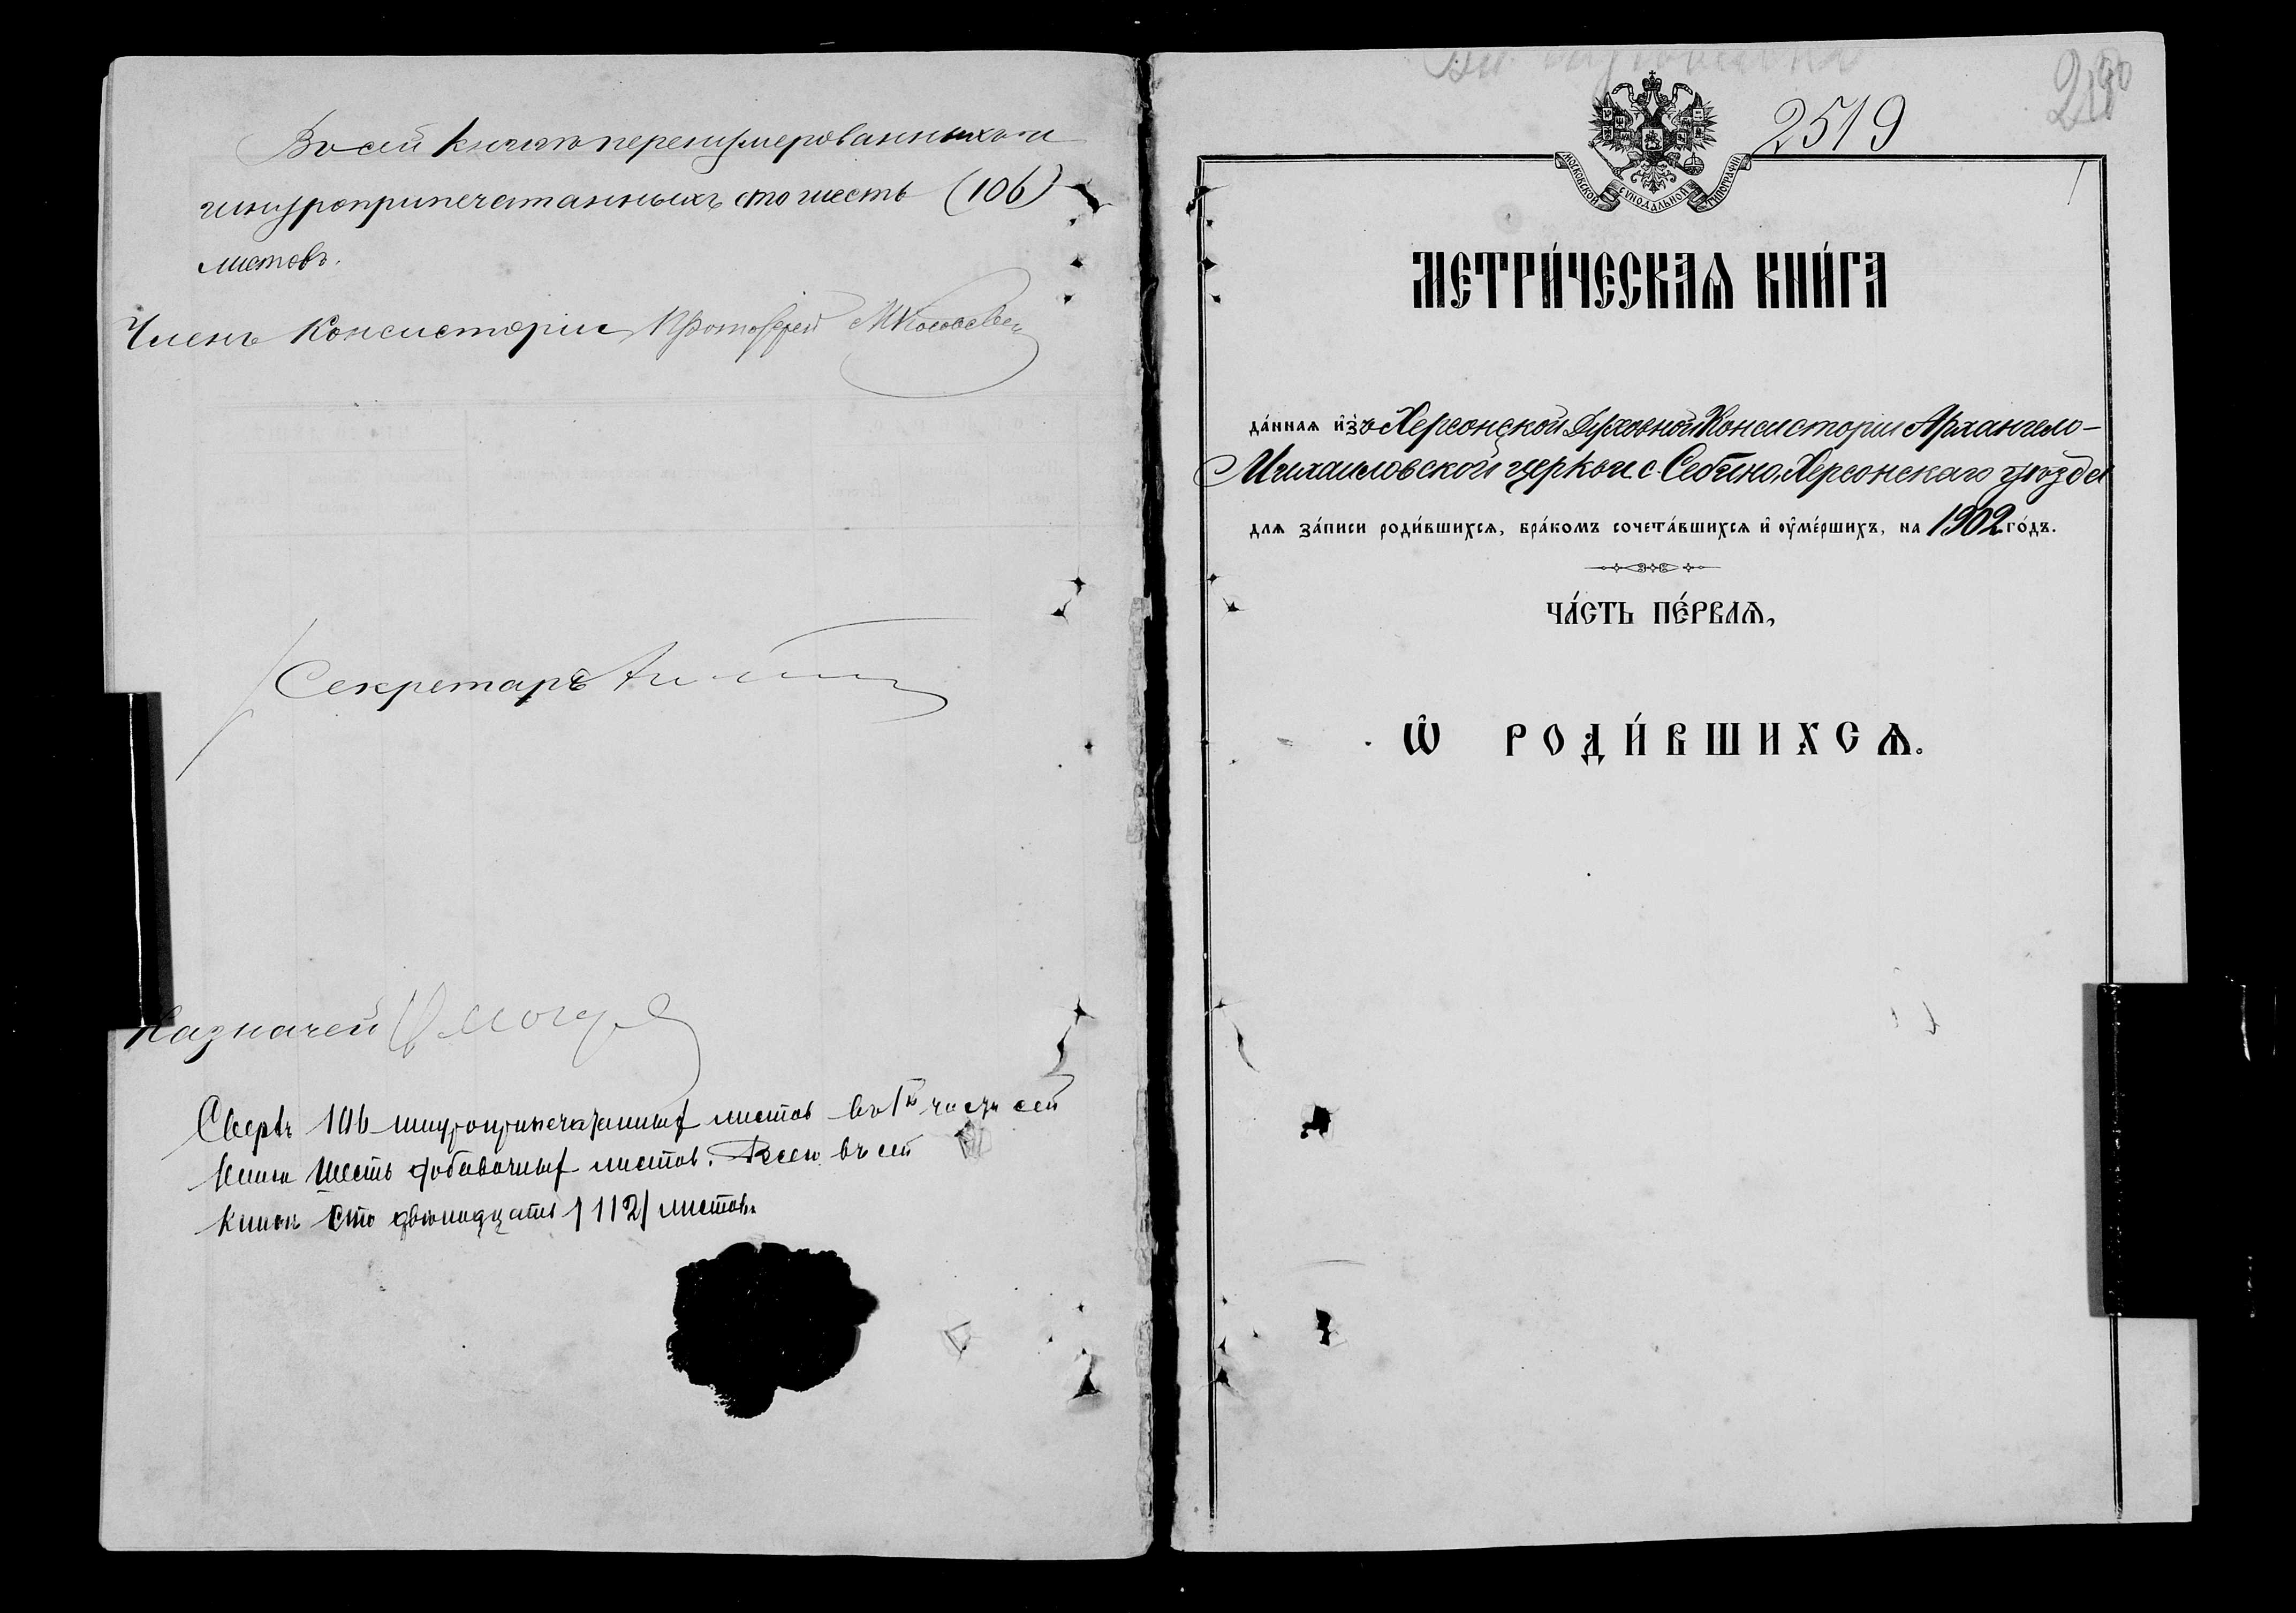 Въ сей книгѣ перенумерованныхъ и
шнуроприпечатанныхъ сто шесть (106)
листовъ.
Членъ Консисторіи Протоіерей
Секретарь
Казначей
Сверхъ 106 шнуроприпечатанных листов въ 1й части сей
книги шесть добавочных листов. Всего въ сей
книгѣ сто двѣнадцать /112/ листовъ.
2519
МОСКОВСКОЙ СѴНОДАЛЬНОЙ ТИПОГРАФІИ
МЕТРИ́ЧЕСКАѦ КНИ́ГА
да́ннаѧ и҆зъ Херсонской Духовной Консисторіи Архангело-
Михаиловской церкви с. Себино, Херсонскаго уѣзда
длѧ за́писи роди́вшихсѧ, бра́комъ сочета́вшихсѧ и҆ оу҆ме́ршихъ, на 1902 го́дъ.
ЧА́СТЬ ПЕ́РВАѦ,
Ѡ҆ РОДИ́ВШИХСѦ.